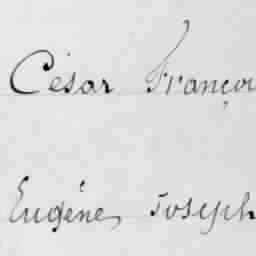 César Françoi
Eugène, Joseph